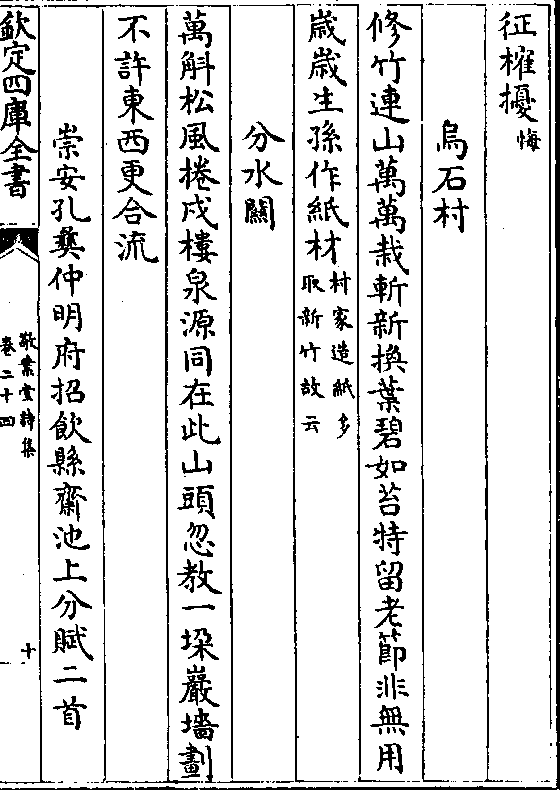 征榷擾悔
烏石村
修竹連山萬萬栽斬新換葉碧如苔特留老節非無用
歲歲生孫作紙材村家造紙多
取新竹故云
分水關
萬斛松風捲戍樓泉源同在此山頭忽教一垜巖墻劃
不許東西更合流
崇安孔彝仲明府招飲縣齋池上分賦二首
欽定四庫全書
敬業堂詩集
卷二十四
十